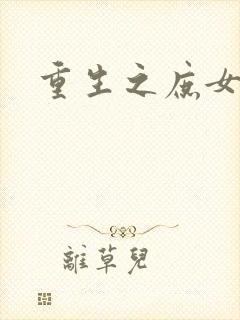 重生之庶女
離草兒